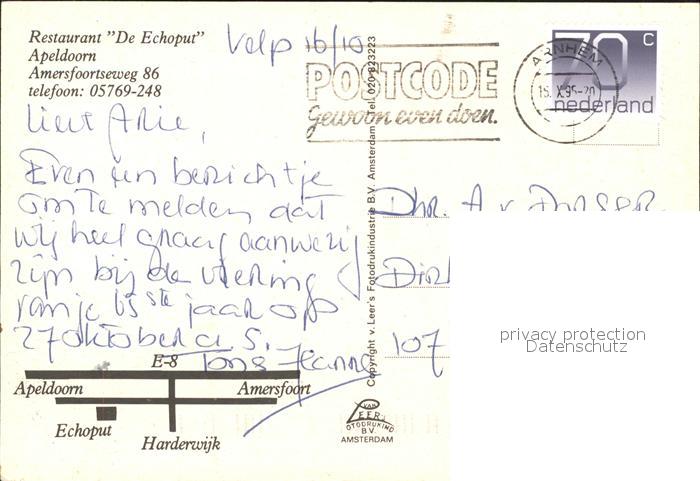 Restaurant "De Echoput"
Apeldoorn
Amersfoortseweg 86
telefoon: 05769-248
Velp 16/10
POSTCODE
Gewoon even doen.
ARNHEM
15.X.95-20
70 c
nederland
Lieve Arie,
Even een berichtje
om te melden dat
wij heel graag aanwezig
zijn bij de viering
van je 65ste jaar op
27 oktober a.s.
Tons Jeanne
Dhr. A v
107
privacy protection
Datenschutz
Copyright v. Leer's Fotodrukindustrie B.V. Amsterdam Tel. 020-823223
E-8
Apeldoorn
Amersfoort
Echoput
Harderwijk
VAN
LEER'S
FOTODRUKIND
B.V.
AMSTERDAM